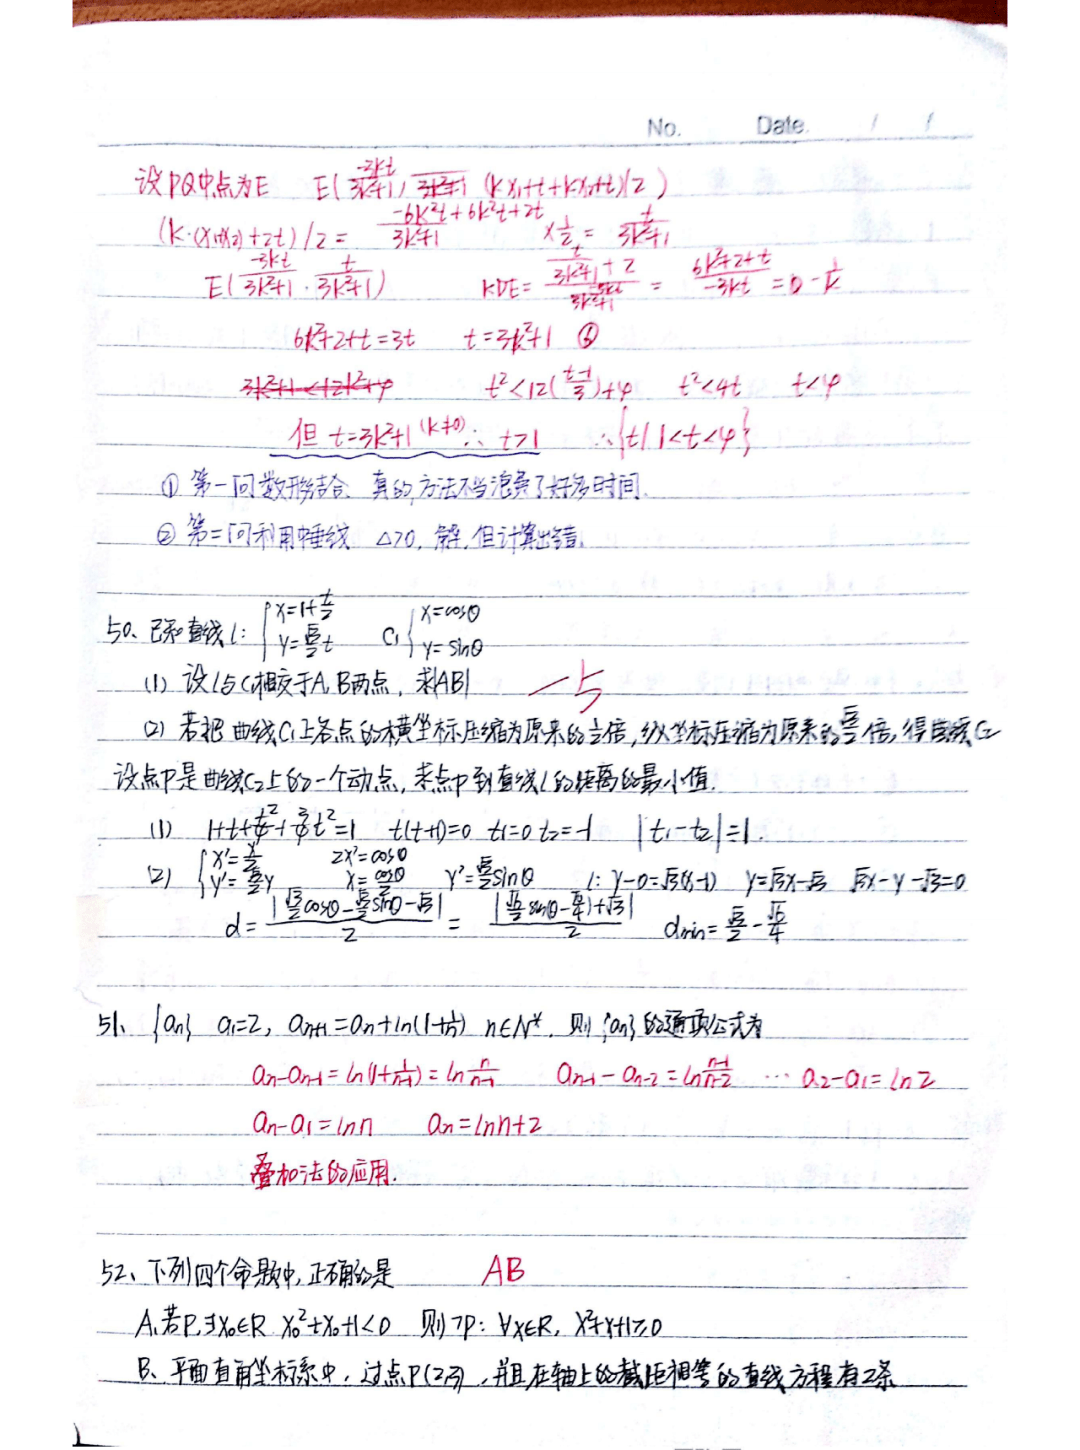 No. Date. / /
设PQ中点为E E(-3kt/3k²+1, (kx₁+t+kx₂+t)/2)
(k·(x₁+x₂)+2t)/2 = -6k²t+6k²t+2t/3k²+1 ×1/2 = t/3k²+1
E(-3kt/3k²+1 · t/3k²+1) KDE= = 6k²+2+t/-3kt = -1/k
6k²+2+t=3t t=3k²+1 ⑥
t²<12(t-1/3)+4 t²<4t t<4
但 t=3k²+1 (k≠0) ∴ t>1 ∴{t|1<t<4}
① 第一问数形结合、真的,方法不当浪费了好多时间.
② 第二问利用中垂线 △>0, 解,但计算出错.
50、已知直线l: {x=1+t/2 y=√3/2 t C₁{x=cosθ y=sinθ
(1) 设l与C₁相交于A、B两点, 求|AB| 一5
(2) 若把曲线C₁上各点的横坐标压缩为原来的1/2倍,纵坐标压缩为原来的√3/2倍,得曲线C₂
设点P是曲线C₂上的一个动点,求点P到直线l的距离的最小值.
(1) 1+t+t²/4+3/4t²=1 t(t+1)=0 t₁=0 t₂=-1 |t₁-t₂|=1.
(2) {x'=x/2 y'=√3/2y 2x'=cosθ x=cosθ/2 y'=√3/2sinθ l: y-0=√3(x-1) y=√3x-√3 √3x-y-√3=0
d=|√3/2cosθ-√3/2sinθ-√3|/2 = |√6/2sin(θ-π/4)+√3|/2 dmin=√3/2-√6/4
51、{an} a₁=2, an+1=an+ln(1+1/n) n∈N*, 则{an}的通项公式为
an-an-1=ln(1+1/n-1)=ln n/n-1 an-1-an-2=ln n-1/n-2 … a₂-a₁=ln2
an-a₁=lnn an=lnn+2
叠加法的应用.
52、下列四个命题中,正确的是 AB
A、若P,∃x₀∈R x₀²+x₀+1<0 则¬P: ∀x∈R, x²+x+1≥0
B、平面直角坐标系中,过点P(2,3),并且在轴上的截距相等的直线方程有2条